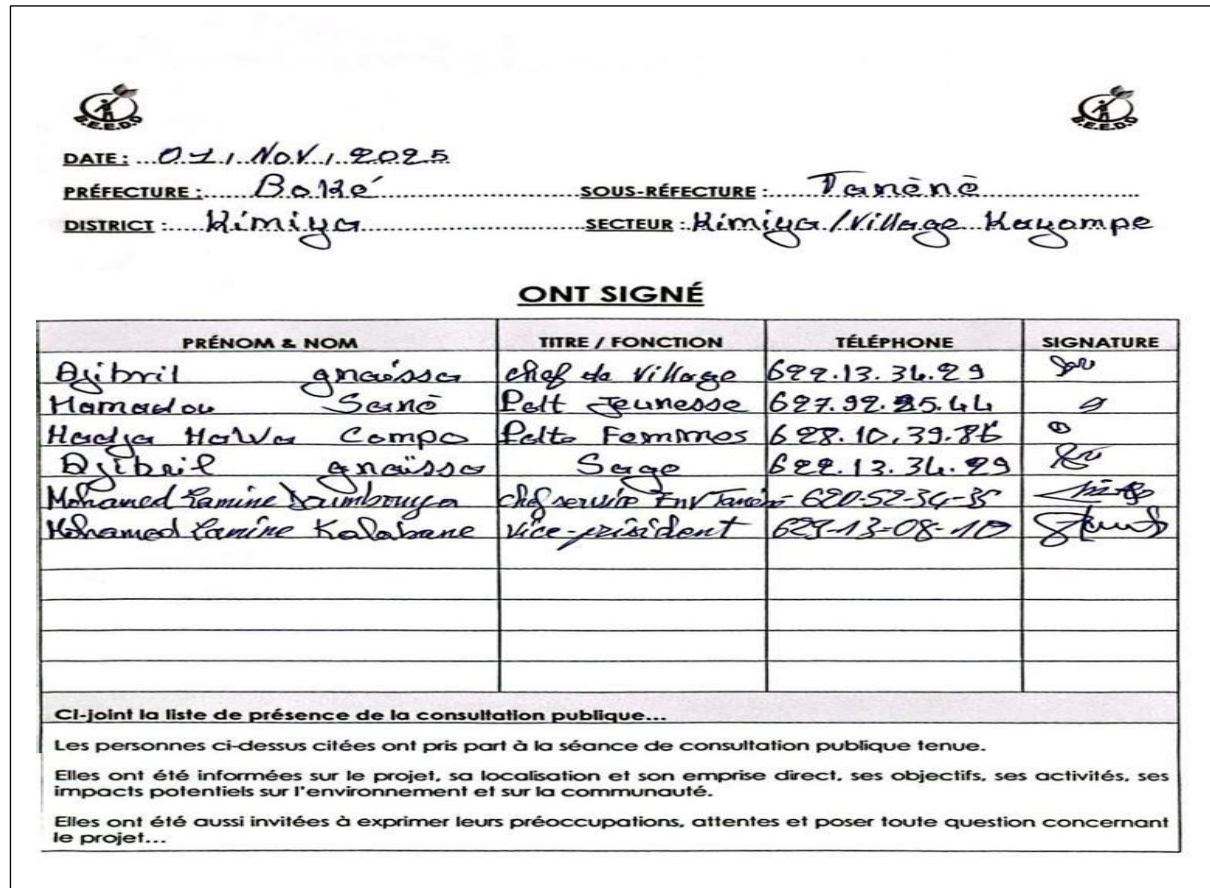 B.E.E.D.D B.E.E.D.D
DATE : 01 / NOV / 2025
PRÉFECTURE : Boké SOUS-RÉFECTURE : Tanènè
DISTRICT : Kimiya SECTEUR : Kimiya / Village Kayompe
ONT SIGNÉ
PRÉNOM & NOM TITRE / FONCTION TÉLÉPHONE SIGNATURE
Djibril gnaïssa chef de Village 622.13.34.29
Mamadou Sanò Pdt Jeunesse 627.92.25.44
Hadja Hawa Campo Pdte Femmes 628.10.39.86
Djibril gnaïssa Sage 622.13.34.29
Mohamed Lamine Daumbouya chef service Env Tanènè 620-52-34-35
Mohamed Lamine Kalabane Vice-président 629-13-08-10
Ci-joint la liste de présence de la consultation publique...
Les personnes ci-dessus citées ont pris part à la séance de consultation publique tenue.
Elles ont été informées sur le projet, sa localisation et son emprise direct, ses objectifs, ses activités, ses
impacts potentiels sur l'environnement et sur la communauté.
Elles ont été aussi invitées à exprimer leurs préoccupations, attentes et poser toute question concernant
le projet...